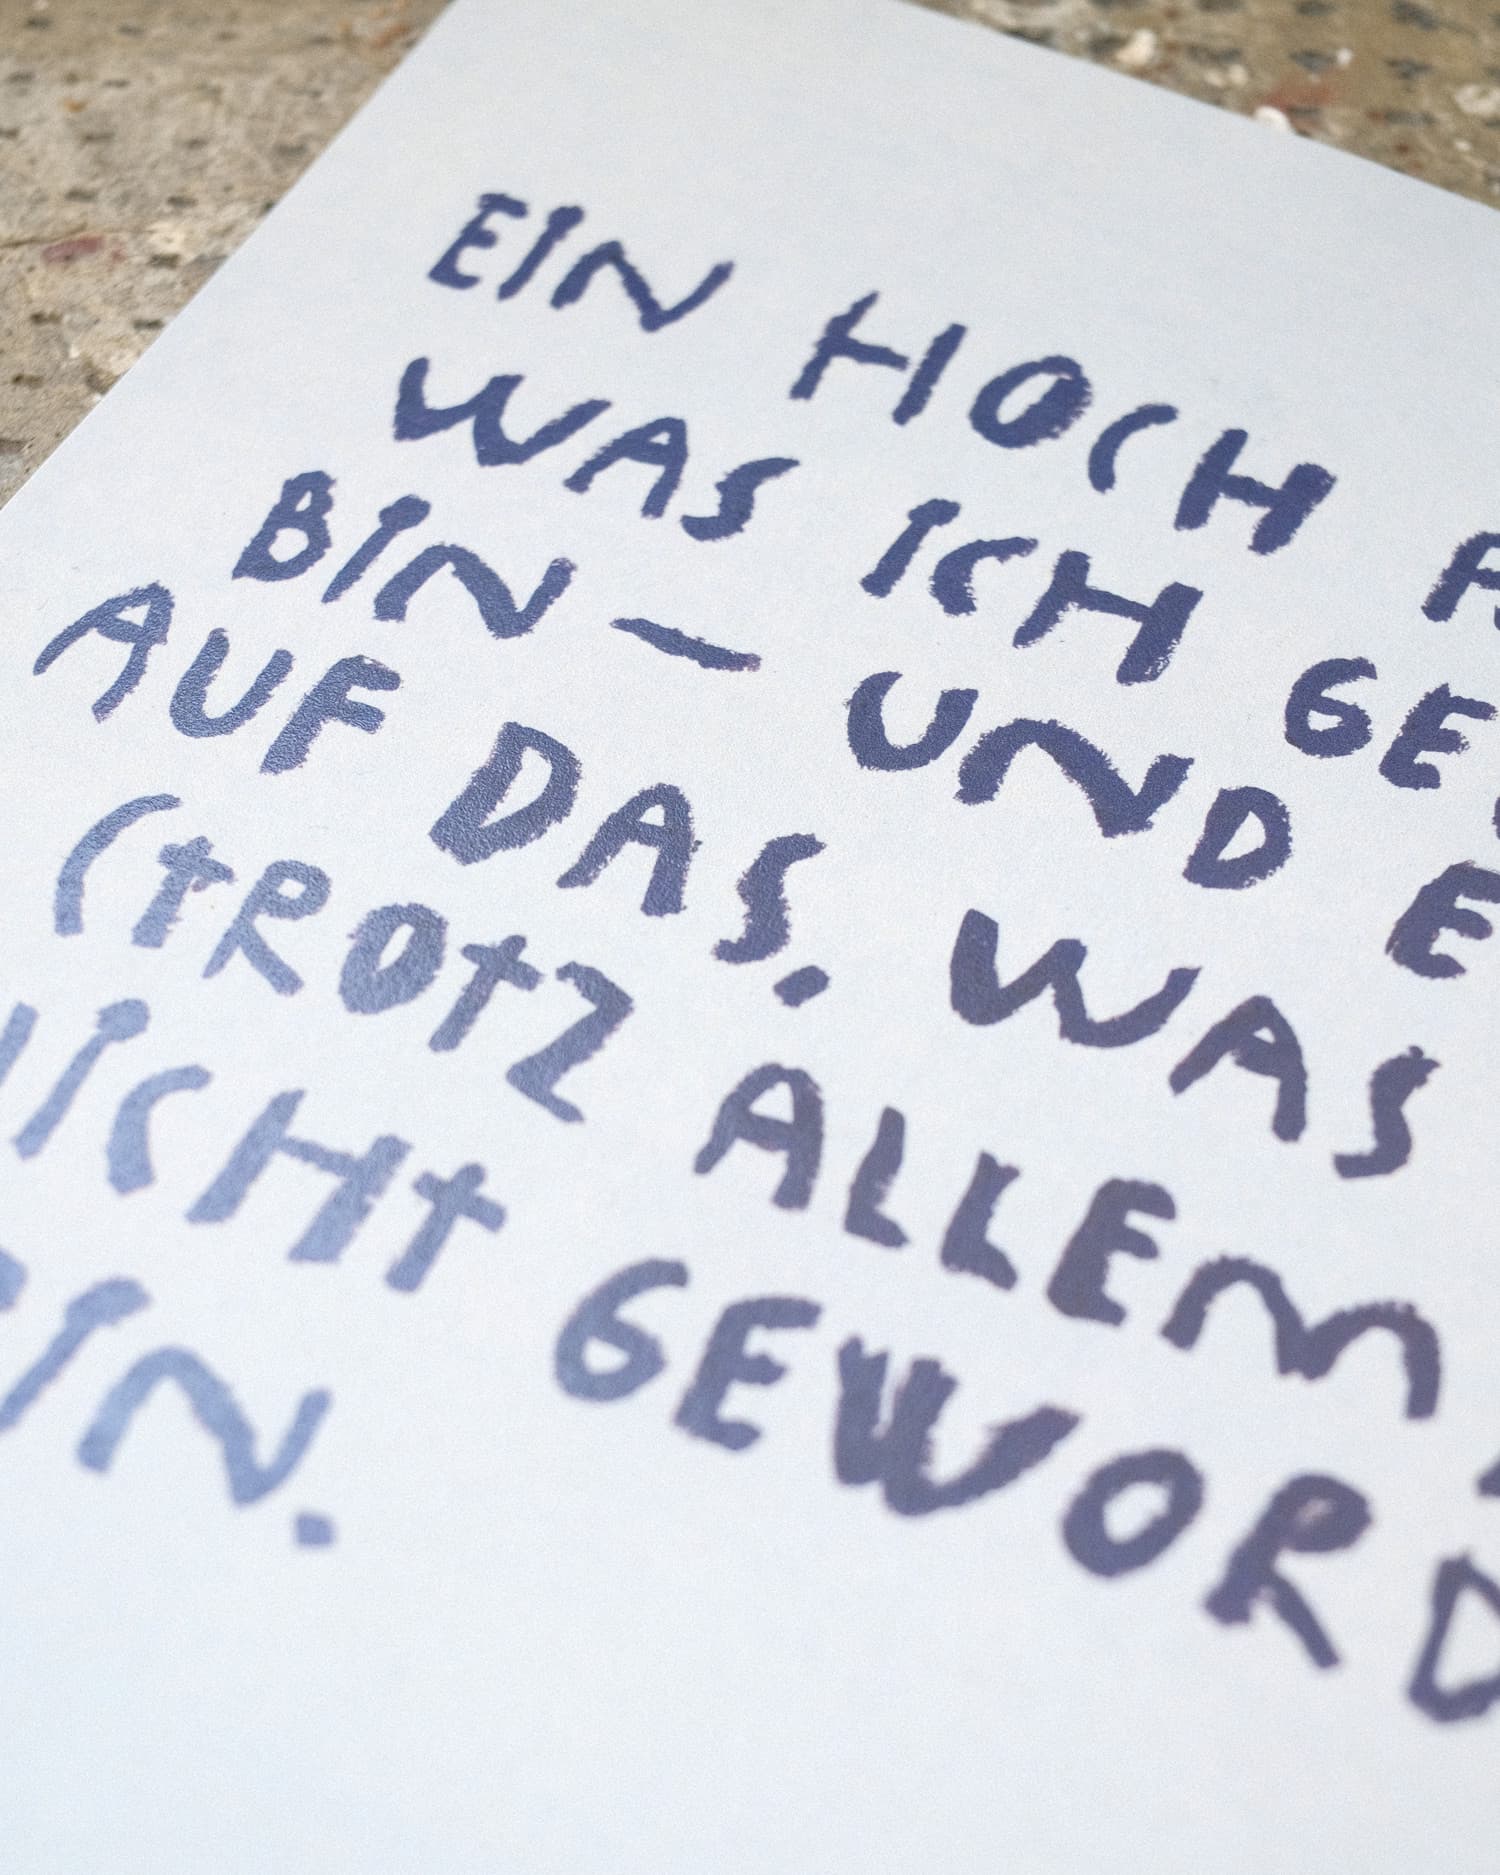 EIN HOCH A
WAS ICH GE
BIN – UND E
AUF DAS, WAS
(TROTZ ALLEM
NICHT GEWORD
BIN.